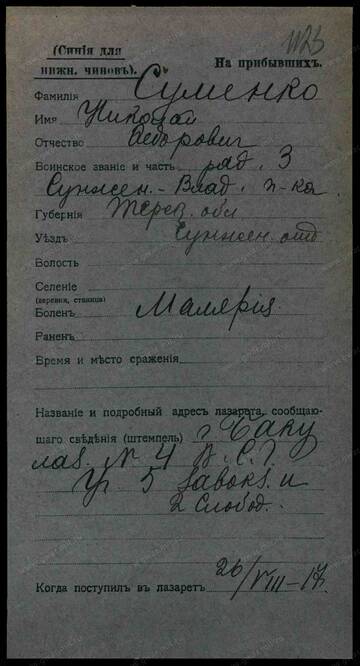 1123
(Синія для
нижн. чиновъ).
На прибывшихъ.
Фамилія Суменко
Имя Николай
Отчество Федорович
Воинское званіе и часть ряд. 3
Сунжен.-Влад. п-ка
Губернія Терск. обл
Уѣздъ Сунжен. отд
Волость
Селеніе
(деревня, станица)
Боленъ Малярія
Раненъ
Время и мѣсто сраженія
Названіе и подробный адресъ лазарета, сообщаю-
щаго свѣдѣнія (штемпель) г Баку
лаз. N 4 В. С. Г.
Уг 5 Завокз. и
2 Слобод.
Когда поступилъ въ лазаретъ 26/VIII-17.